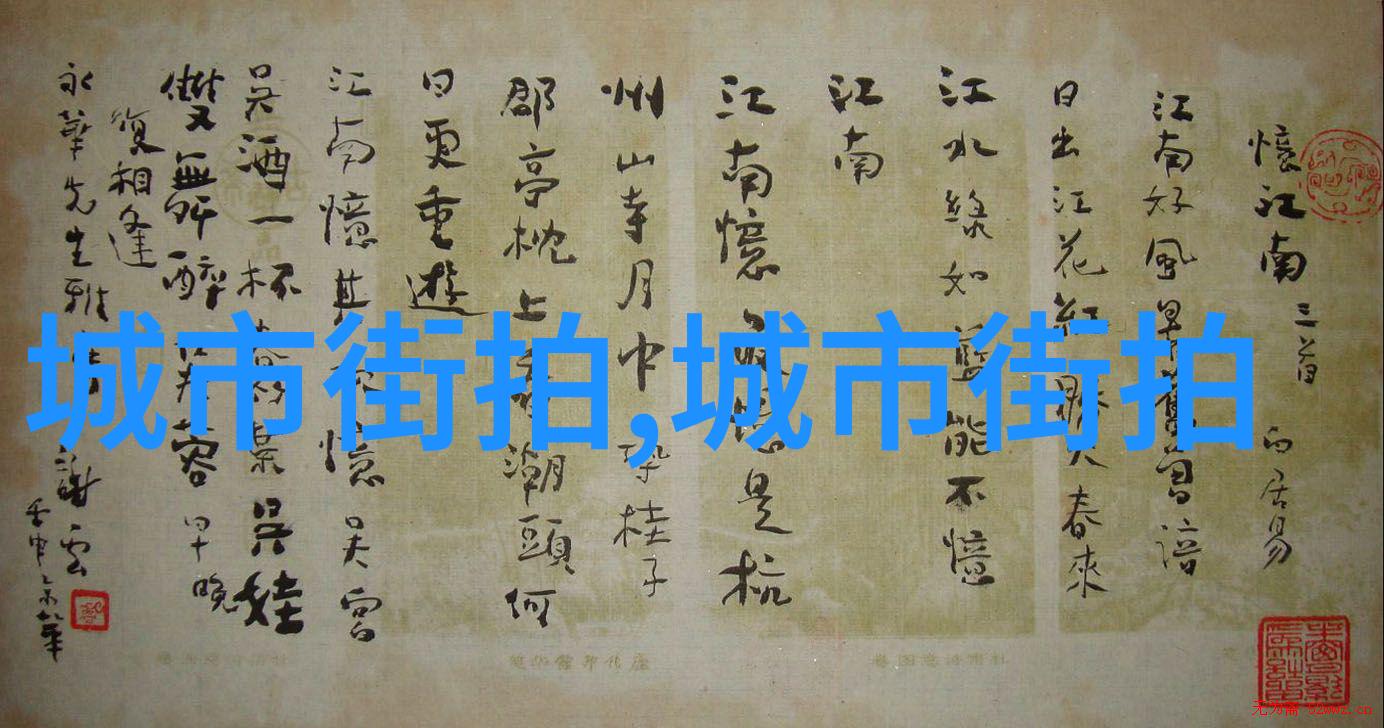 憶江南 三首 白居易
江南好風景舊曾諳
日出江花紅勝火春來
江水綠如藍能不憶
江南
江南憶最憶是杭
州山寺月中尋桂子
郡亭枕上看潮頭何
日更重遊
江南憶其次憶吳宮
吳酒一杯春竹葉吳娃
雙舞醉芙蓉早晚
復相逢
永華先生雅 謝雲
壬申京華
城市街拍,城市街拍
无为斋